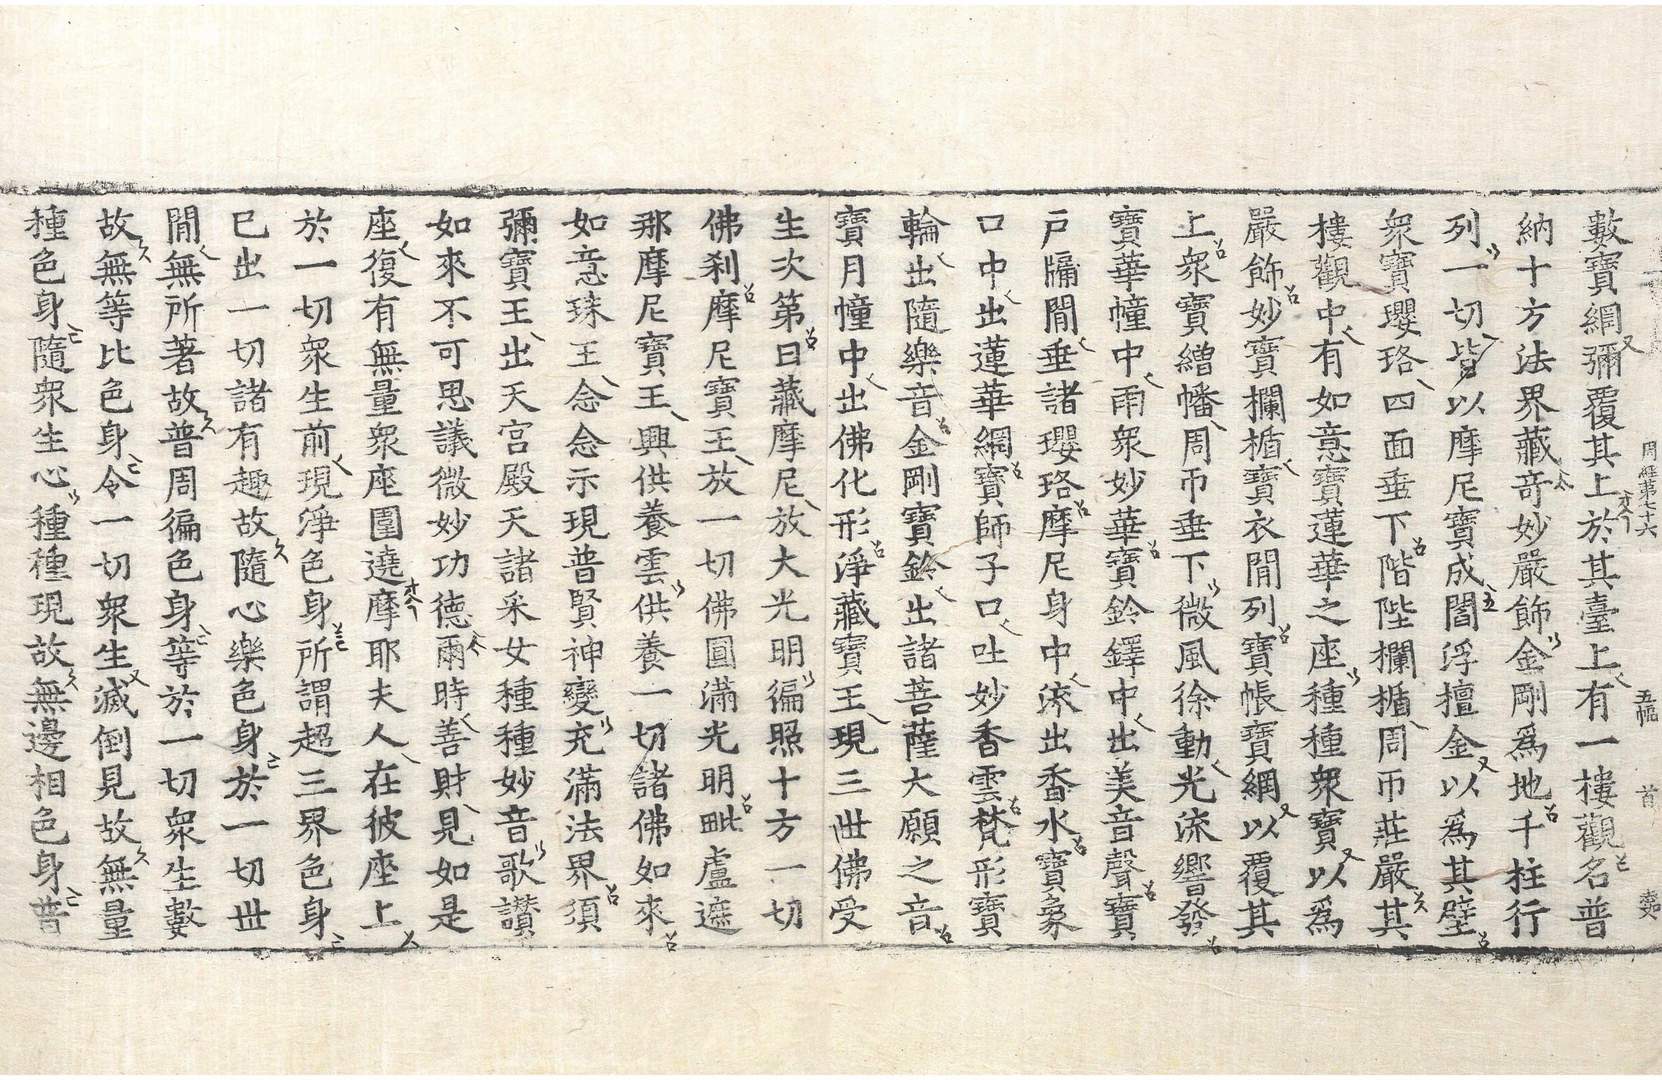 周經第七十六 五幅 首
數寶網彌覆其上於其臺上有一樓觀名普
納十方法界藏奇妙嚴飾金剛爲地千柱行
列一切皆以摩尼寶成閻浮檀金以爲其壁
衆寶瓔珞四面垂下階陛欄楯周帀莊嚴其
樓觀中有如意寶蓮華之座種種衆寶以爲
嚴飾妙寶欄楯寶衣閒列寶帳寶網以覆其
上衆寶繒幡周帀垂下微風徐動光流響發
寶華幢中雨衆妙華寶鈴鐸中出美音聲寶
戶牖閒垂諸瓔珞摩尼身中流出香水寶象
口中出蓮華網寶師子口吐妙香雲梵形寶
輪出隨樂音金剛寶鈴出諸菩薩大願之音
寶月幢中出佛化形淨藏寶王現三世佛受
生次第日藏摩尼放大光明徧照十方一切
佛刹摩尼寶王放一切佛圓滿光明毗盧遮
那摩尼寶王興供養雲供養一切諸佛如來
如意珠王念念示現普賢神變充滿法界須
彌寶王出天宮殿天諸采女種種妙音歌讃
如來不可思議微妙功德爾時善財見如是
座復有無量衆座圍遶摩耶夫人在彼座上
於一切衆生前現淨色身所謂超三界色身
已出一切諸有趣故隨心樂色身於一切世
閒無所著故普周徧色身等於一切衆生數
故無等比色身令一切衆生滅倒見故無量
種色身隨衆生心種種現故無邊相色身普